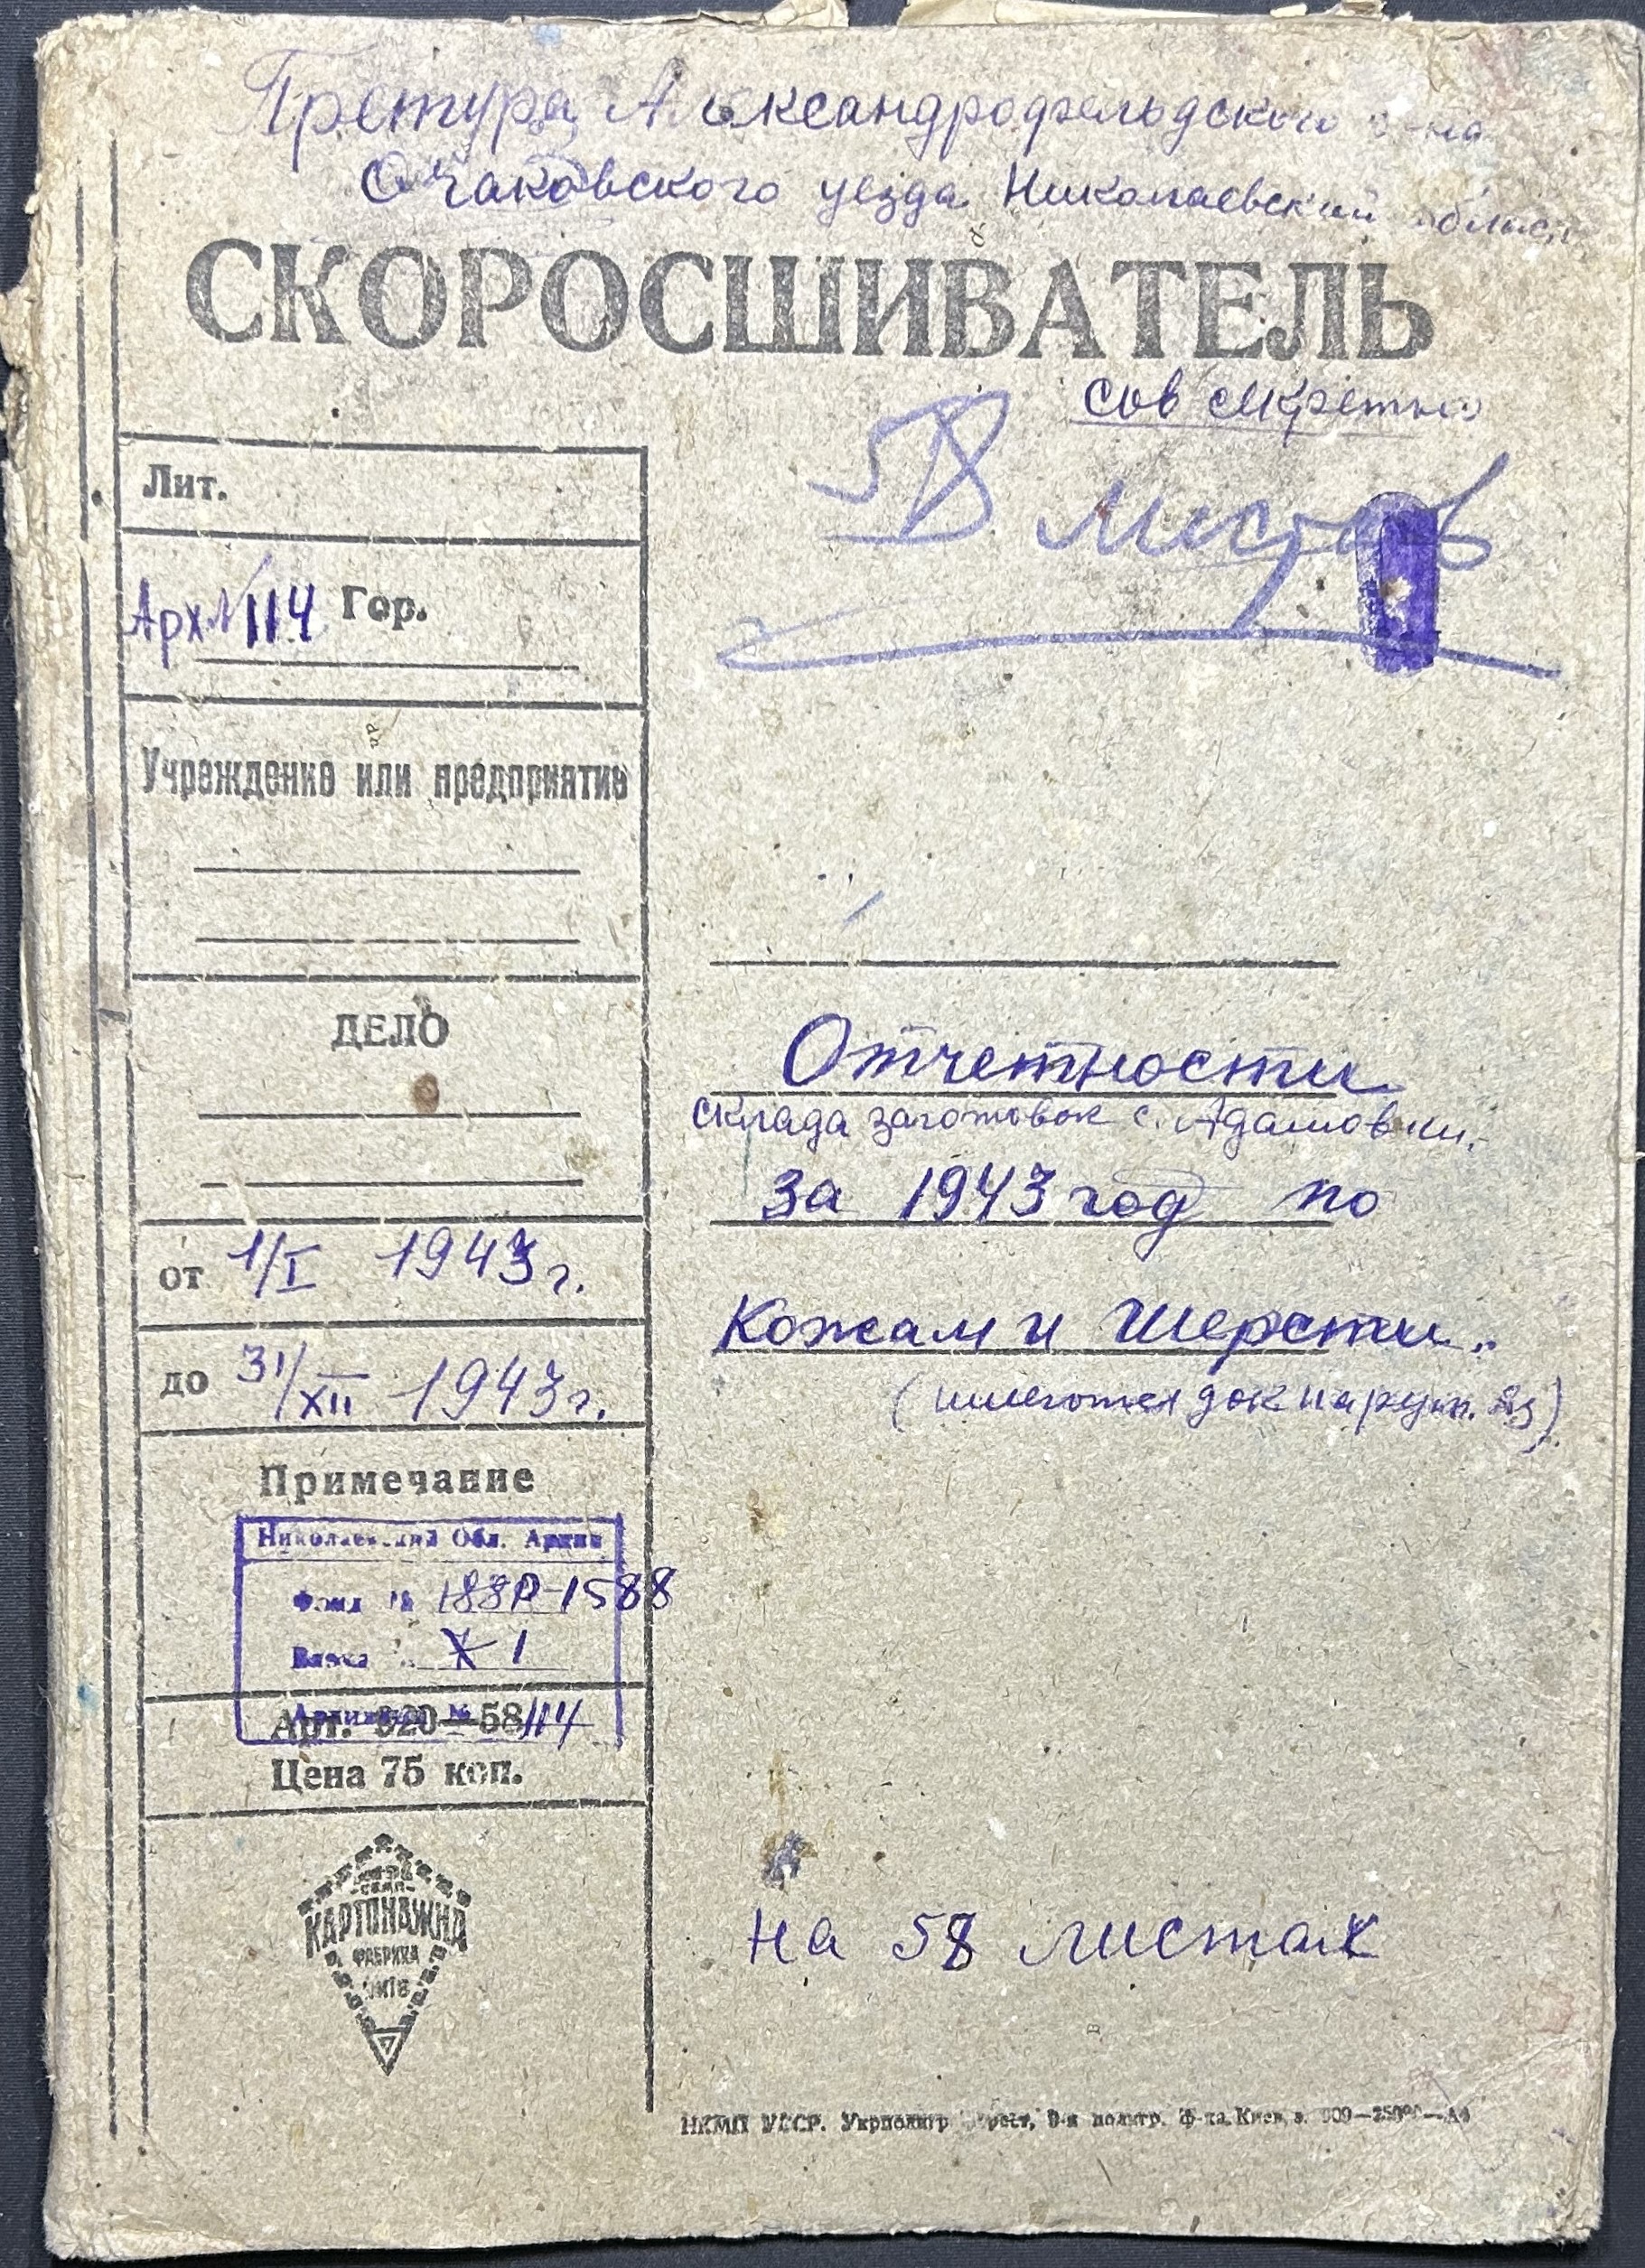 Претура Александрофельдского р-на
Очаковского уезда Николаевский област
СКОРОСШИВАТЕЛЬ
сов секретно
58 листов
Лит.
Арх.№114 Гор.
Учреждение или предприятие
ДЕЛО
Отчетности
склада заготовок с. Адамовки.
за 1943 год по
Кожам и Шерсти.
(имеются док на румын. яз)
от 1/I 1943 г.
до 31/XII 1943 г.
Примечание
Николаевский Обл. Архив
Фонд № 1588
Вязка № 1
Архивный № 114
Арт. 920—58
Цена 75 коп.
КАРТОНАЖНА
ФАБРИКА
на 58 листах
НКМП УССР. Укрполиграфтрест, полигр. ф-ка, Киев, з.